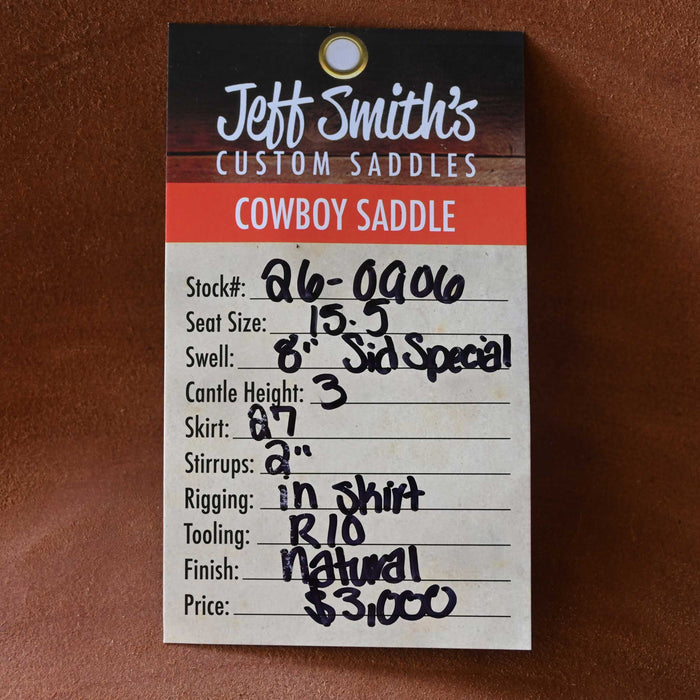 Jeff Smith's
CUSTOM SADDLES
COWBOY SADDLE
Stock#: 26-0906
Seat Size: 15.5
Swell: 8" Sid Special
Cantle Height: 3
Skirt: 27
Stirrups: 2"
Rigging: in skirt
Tooling: R10
Finish: natural
Price: $3,000